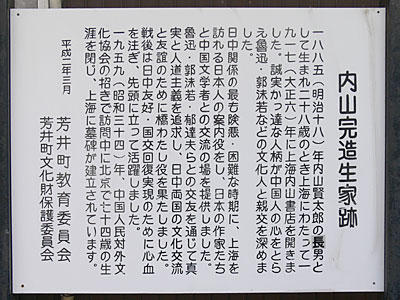 内山完造生家跡
一八八五(明治十八)年内山賢太郎の長男と
して生まれ二十八歳のとき上海にわたって一
九一七(大正六)年に上海内山書店を開きま
した。誠実かっ達な人柄が中国人の心をとら
え魯迅・郭沫若などの文化人と親交を深めま
した。
日中関係の最も険悪・困難な時期に、上海を
訪れる日本人の案内役をし、日本の作家たち
と中国文学者との交流の場を提供しました。
魯迅・郭沫若・郁達夫らとの交友を通じて真
実と人道主義を追求し、日中両国の文化交流
と友誼のために橋わたし役を果たしました。
戦後は日中友好・国交回復実現のために心血
を注ぎ、先頭に立って活躍しました。
一九五九(昭和三十四)年、中国人民対外文
化協会の招きで訪問中に北京で七十四歳の生
涯を閉じ、上海に墓碑が建立されています。
平成二年三月
芳井町教育委員会
芳井町文化財保護委員会